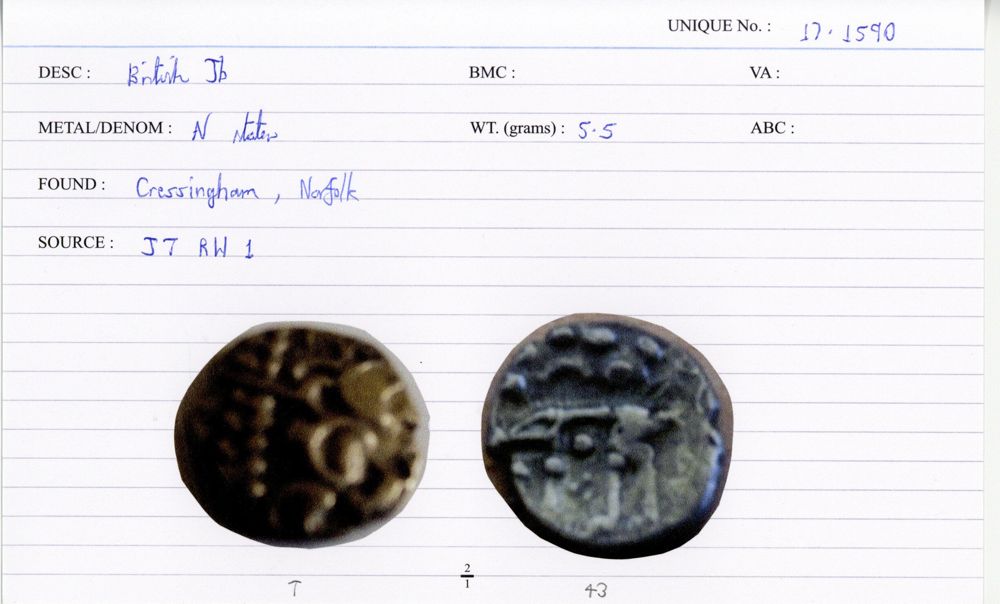 UNIQUE No. : 17.1590
DESC : British Jb BMC : VA :
METAL/DENOM : N stater WT. (grams) : 5.5 ABC :
FOUND : Cressingham, Norfolk
SOURCE : JT RW 1
2
1
T 43